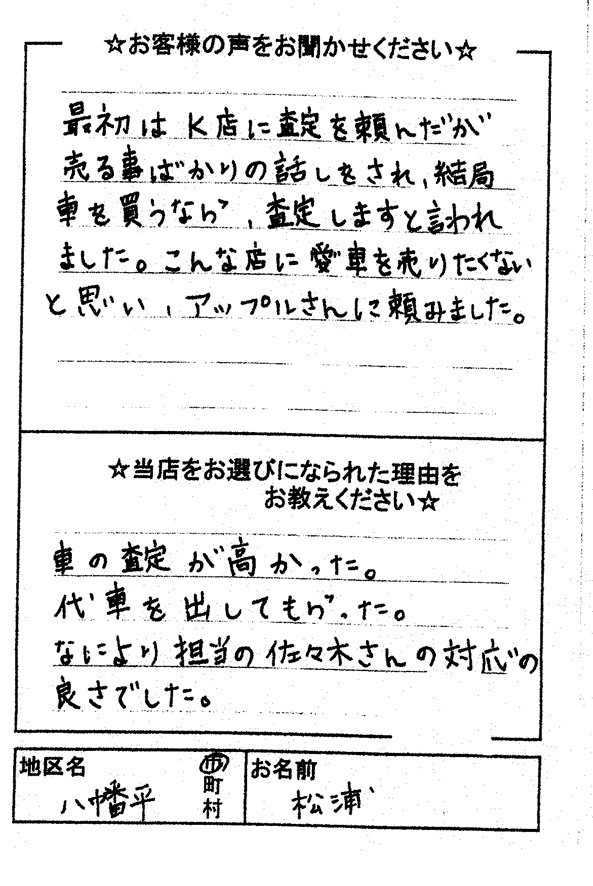 ☆お客様の声をお聞かせください☆
最初はK店に査定を頼んだが
売る事ばかりの話しをされ、結局
車を買うなら、査定しますと言われ
ました。こんな店に愛車を売りたくない
と思い、アップルさんに頼みました。
☆当店をお選びになられた理由を
お教えください☆
車の査定が高かった。
代車を出してもらった。
なにより担当の佐々木さんの対応の
良さでした。
地区名
八幡平
市
町
村
お名前
松浦